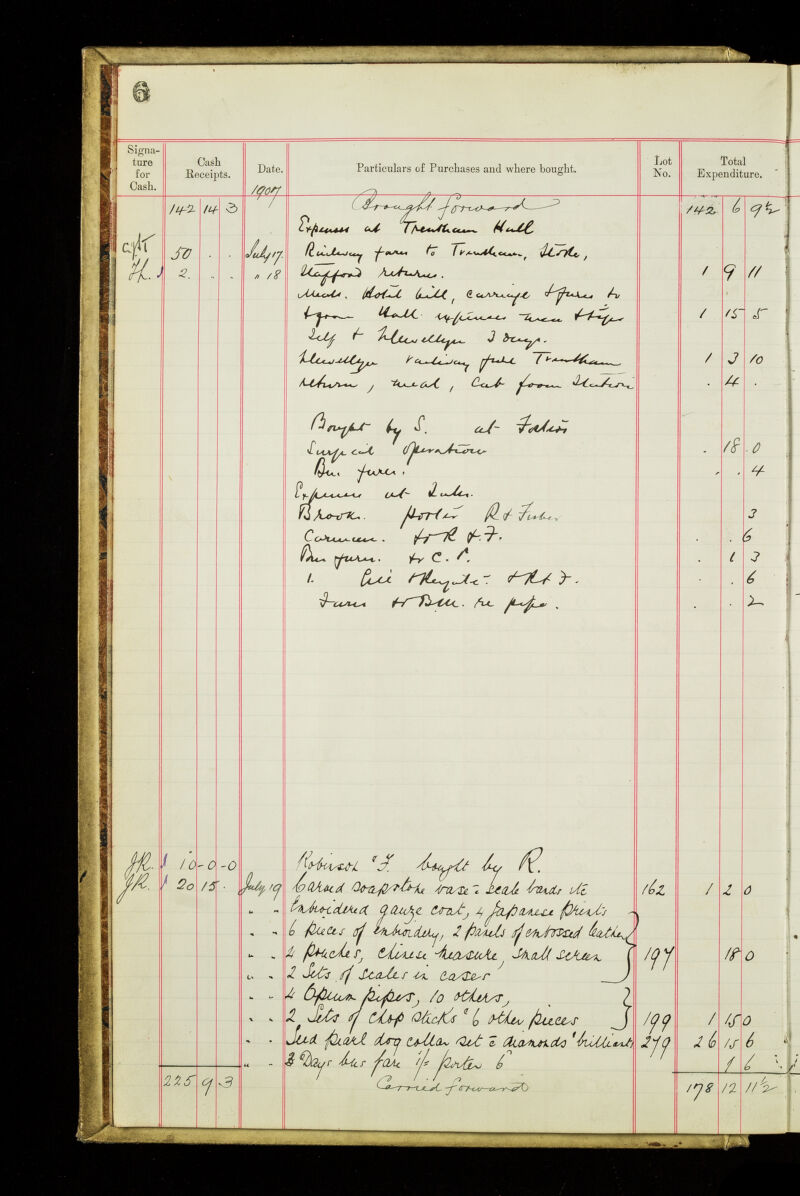 6
Signature for Cash. Cash Receipts. Date. Particulars of Purchases and where bought. Lot No. Total Expenditure.
1907
142 14 3 Brought forward 142 6 9½
Expenses at Trentham Hall
50 . . July 17. Railway fares to Trentham, Stoke,
2. . . " 18 Stafford returns. 1 9 11
Meals. Hotel bill, carriage & fares to
& from Hall expenses men & tips 1 15 5
Self & Llewellyn 3 days.
Llewellyn railway fare Trentham 1 3 10
return, meal, cab from Station . 4 .
Bought by S. at Fosters
Surgical operation . 18 . 0
Bus fares. . . 4
Expenses at Sales.
Brook. porter R & Fisher 3
Carman. to R & F. . . 6
Bus fares. to C. P. . 1 3
1. & R & F. . . 6
Fares to B.M. re pipe. . . 2
JR. 10-0-0 Robinson & F. bought by R.
JR. 20 15 . July 19 Carved soapstone vase & scale bands etc 162 1 2 0
" " Embroidered gauze coat, 4 Japanese prints
" " 6 pieces of embroidery, 2 panels of embossed leather
" " 4 pouches, chinese measure, small screen 197 18 0
" " 2 Sets of scales in cases
" " 4 Opium pipes, 10 others,
" " 2 Sets of chop sticks & 6 other pieces 199 1 15 0
" " Seed pearl dog collar set c diamonds & brilliants 279 26 15 6
" " 3 Days bus fare 1/= porter 6 1 6
225 9 3 Carried forward 178 12 11½